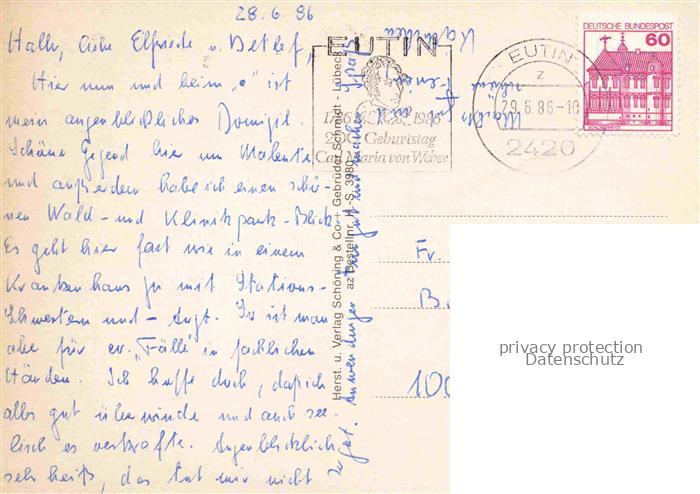 28.6.86
Hallo, liebe Elfriede u. Detlef,
Hier nun und beim "o" ist
mein augenblickliches Domizil.
Schöne Gegend hier um Malente
und außerdem habe ich einen schö-
nen Wald- und Klinikpark-Blick
Es geht hier fast wie in einem
Krankenhaus zu mit Stations-
Schwestern und - Arzt. So ist man
aber für ev. "Fälle" in fachlichen
Händen. Ich hoffe doch, daß ich
alles gut überwinde und auch see-
lisch es verkrafte. Augenblicklich
sehr heiß, das tut mir nicht
gut. Anwendungen tun gut und machen Spaß
schöne Ferien
EUTIN
1786 1986
Geburtstag
Carl Maria von Weber
EUTIN
z
29.6.86-10
2420
DEUTSCHE BUNDESPOST
60
Herst. u. Verlag Schöning & Co + Gebrüder Schmidt - Lübeck
az Bestellnr. H-S 3980
Fr.
B
100
privacy protection
Datenschutz